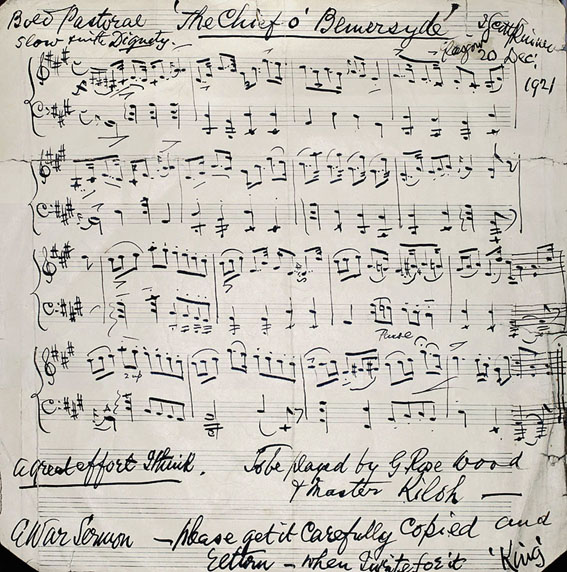 Bold Pastoral 'The Chief o' Bemersyde' J Scott Skinner
Slow with Dignity. Glasgow 20 Dec.
1921
A great effort I think. To be played by G. Rose Wood
& Master Kiloh —
A War Sermon — please get it Carefully Copied and
Return — when I write for it 'King'